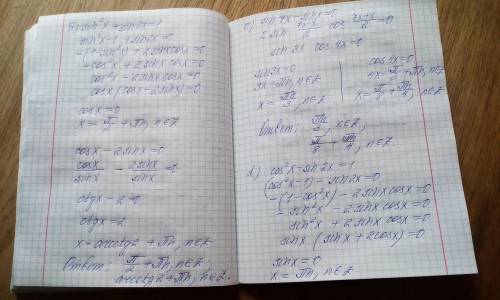 sin²x + sin2x = 1
sin²x - 1 + sin2x = 0
-(1-sin²x) + 2sinxcosx = 0
-cos²x + 2sinx cosx = 0
cos²x - 2sinx cosx = 0
cosx (cosx - 2sinx) = 0
cosx = 0
x = π/2 + πn, n∈Z
cosx - 2sinx = 0
cosx/sinx - 2sinx/sinx = 0
ctgx - 2 = 0
ctgx = 2
x = arcctg2 + πn, n∈Z
Ответ: π/2 + πn, n∈Z;
arcctg2 + πn, n∈Z.
c) sin4x - sinx = 0
cos 4x = 0
sin3x = 0
3x = πn, n∈Z
x = πn/3, n∈Z
cos4x = 0
4x = π/2 + πn, n∈Z
x = π/8 + πn/4, n∈Z
Ответ: πn/3, n∈Z,
π/8 + πn/4, n∈Z
d) cos²x - sin2x = 1
(cos²x - 1) - sin2x = 0
-(1-cos²x) - 2sinxcosx = 0
-sin²x - 2sinx cosx = 0
sin²x + 2sinx cosx = 0
sinx (sinx + 2cosx) = 0
sinx = 0
x = πn, n∈Z